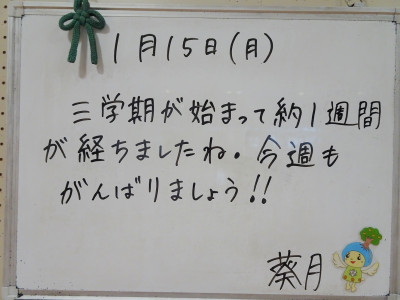 1月15日(月)
三学期が始まって約1週間
が経ちましたね。今週も
がんばりましょう!!
葵月